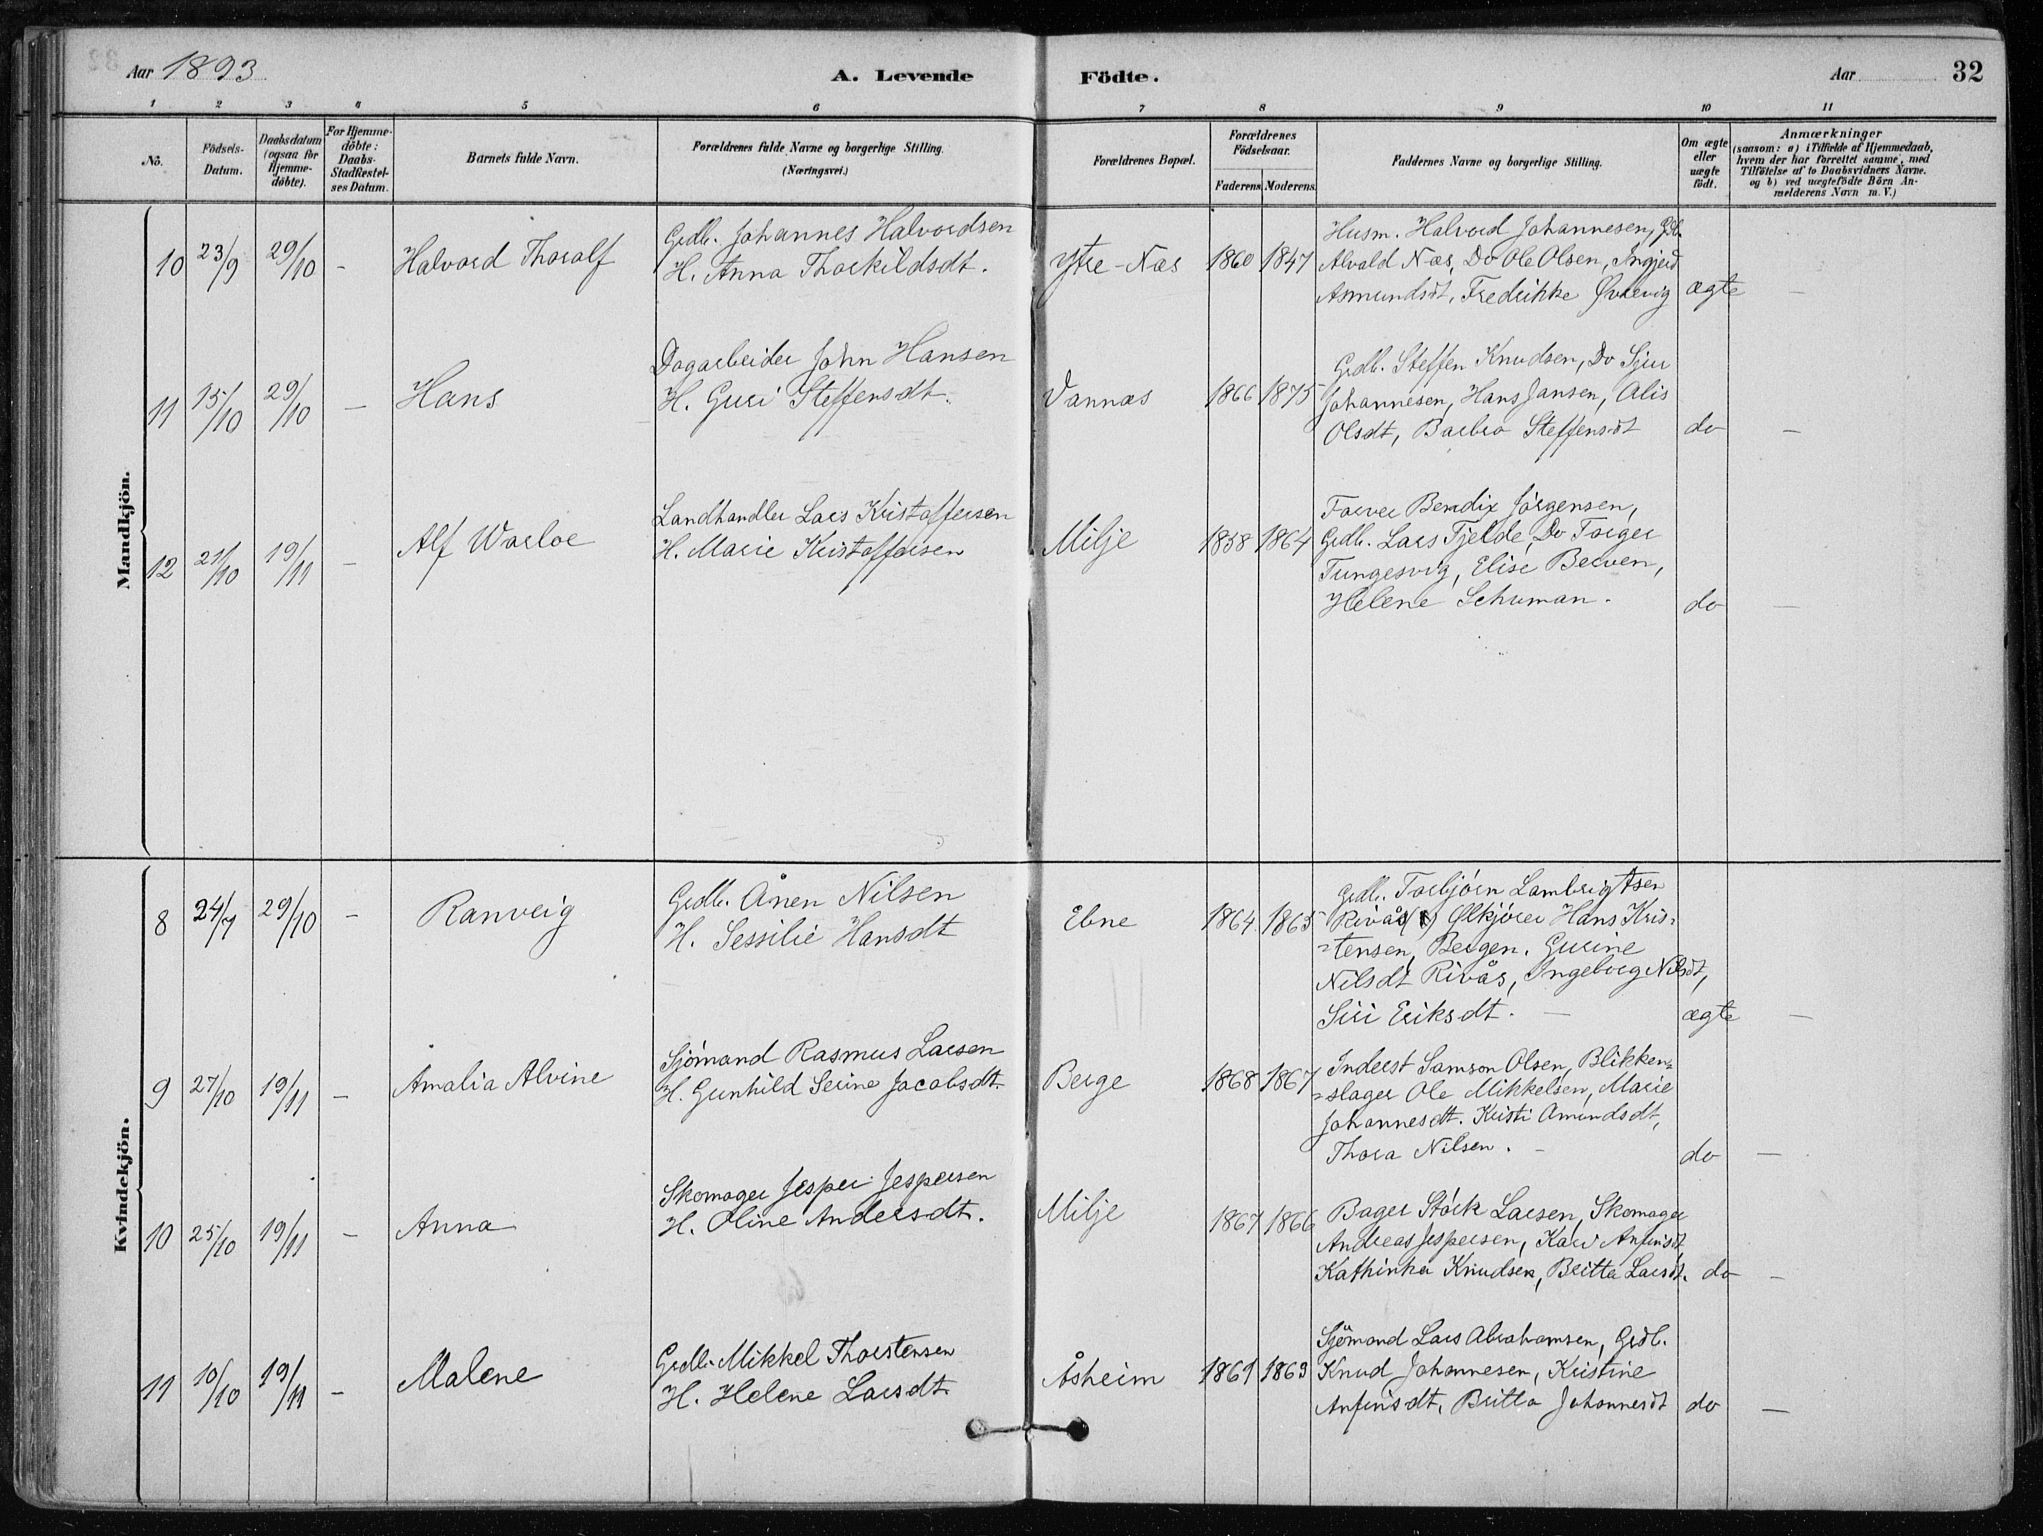 Aar 1893
A. Levende Födte.
Aar
32
1 2 3 4 5 6 7 8 9 10 11
No.
Födsels-Datum.
Daabsdatum (ogsaa for Hjemmedöbte).
For Hjemmedöbte: Daabs-Stadfæstelses Datum.
Barnets fulde Navn.
Forældrenes fulde Navne og borgerlige Stilling.
(Næringsvei.)
Forældrenes Bopæl.
Forældrenes Födselsaar.
Faderens. Moderens.
Faddernes Navne og borgerlige Stilling.
Om ægte eller uægte födt.
Anmærkninger
(saasom: a) i Tilfælde af Hjemmedaab,
hvem der har forrettet samme, med
Tilföielse af to Daabsvidners Navne.
og b) ved uægtefödte Börn Anmelderens Navn m. V.)
Mandkjön.
10 23/9 29/10 - Halvord Thoralf
Grdb. Johannes Halvordsen
H. Anna Thorkildsdt.
Ytre-Næs 1860 1847
Husm. Halvord Johannesen, Grdb.
Alvald Næs, Do Ole Olsen, Ingjerd
Asmundsdt, Fredrikke Øvrevig
ægte -
11 15/10 29/10 - Hans
Dagarbeider John Hansen
H. Guri Steffensdt.
Vannæs 1866 1875
Grdb. Steffen Knudsen, Do Sjur
Johannesen, Hans Jansen, Alis
Olsdt, Barbro Steffensdt
do -
12 21/10 19/11 - Alf Warloe
Landhandler Lars Kristoffersen
H. Marie Kristoffersen
Milje 1858 1864
Farver Bendix Jörgensen,
Grdb. Lars Fjelde, Do Torger
Tungesvig, Elise Berven,
Helene Schuman.
do -
Kvindekjön.
8 24/7 29/10 - Ranveig
Grdb. Ånen Nilsen
H. Sessilie Hansdt
Ebne 1864 1865
Grdb. Torbjörn Lambrigtsen
Rivås, Ølkjörer Hans Kris-
-tensen, Bergen. Gurine
Nilsdt Rivås, Ingeborg Nilsdt,
Siri Eriksdt. -
ægte -
9 27/10 19/11 - Amalia Alvine
Sjömand Rasmus Larsen
H. Gunhild Serine Jacobsdt.
Berge 1868 1867
Inderst Samson Olsen, Blikken-
-slager Ole Mikkelsen, Marie
Johannesdt. Kristi Amundsdt,
Thora Nilsen. -
do -
10 25/10 19/11 - Anna
Skomager Jesper Jespersen
H. Oline Andersdt.
Milje 1867 1866
Bager Störk Larsen, Skomager
Andreas Jespersen, Kari Anfinsdt
Kathinka Knudsen, Britta Larsdt.
do -
11 10/10 19/11 - Malene
Grdb. Mikkel Thorstensen
H. Helene Larsdt.
Åsheim 1861 1863
Sjömand Lars Abrahamsen, Grdb.
Knud Johannesen, Kristine
Anfinsdt, Britta Johannesdt
do -